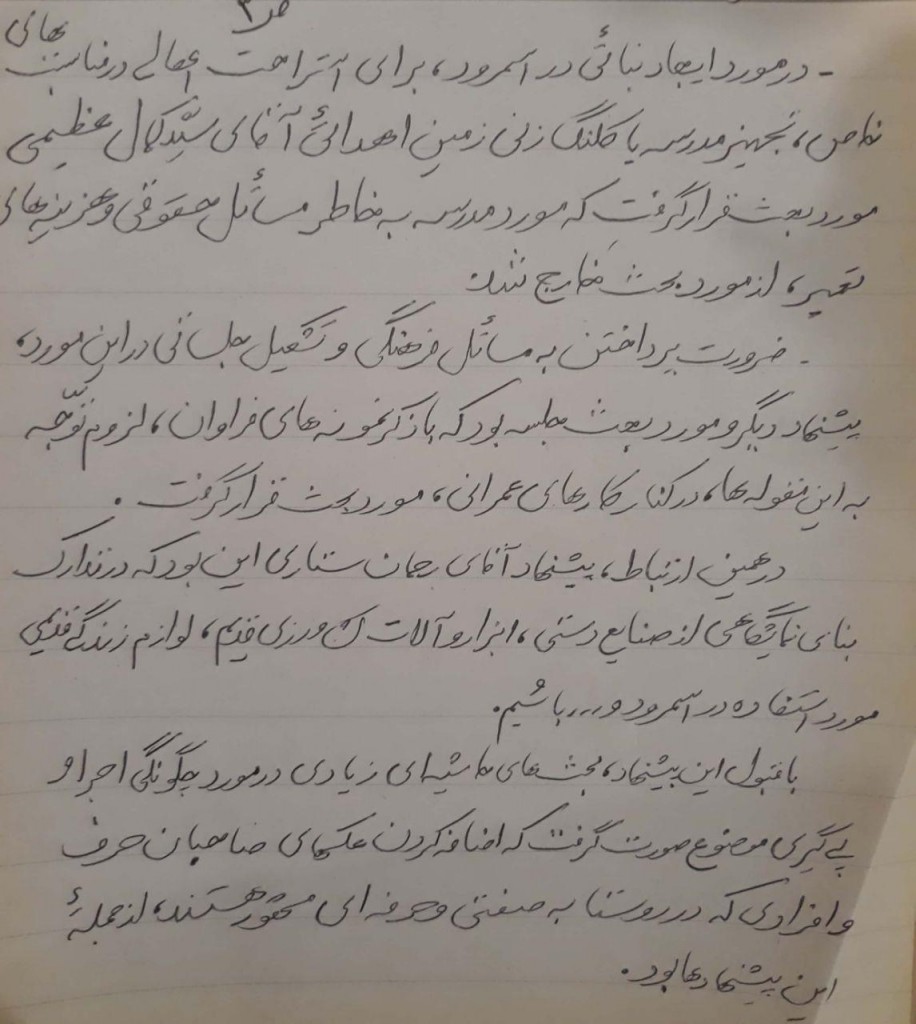 ص ۳
- در مورد ایجاد بنائی در اسمرود، برای استراحت اهالی در مناسبت های
خاص، تجهیز مدرسه یا کلنگ زنی زمین اهدائی آقای سیّد کمال عظیمی
مورد بحث قرار گرفت که مورد مدرسه به خاطر مسائل حقوقی و هزینه های
تعمیر، از مورد بحث خارج شد.
- ضرورت پرداختن به مسائل فرهنگی و تشکیل جلساتی در این مورد،
پیشنهاد دیگر و مورد بحث جلسه بود که با ذکر نمونه های فراوان، لزوم توّجه
به این مقوله ها، در کنار کارهای عمرانی، مورد بحث قرار گرفت.
در همین ارتباط، پیشنهاد آقای رحمان ستاری این بود که در تدارک
بنای نمایشگاهی از صنایع دستی، ابزار و آلات کشاورزی قدیم، لوازم زندگی قدیمی
مورد استفاده در اسمرود و... باشیم.
با قبول این پیشنهاد، بحث های حاشیه ای زیادی در مورد چگونگی اجرا و
پی گیری موضوع صورت گرفت که اضافه کردن عکسهای صاحبان حرف
و افرادی که در روستا به صنعتی و حرفه ای مشهور هستند، از جملهٔ
این پیشنهادها بود.